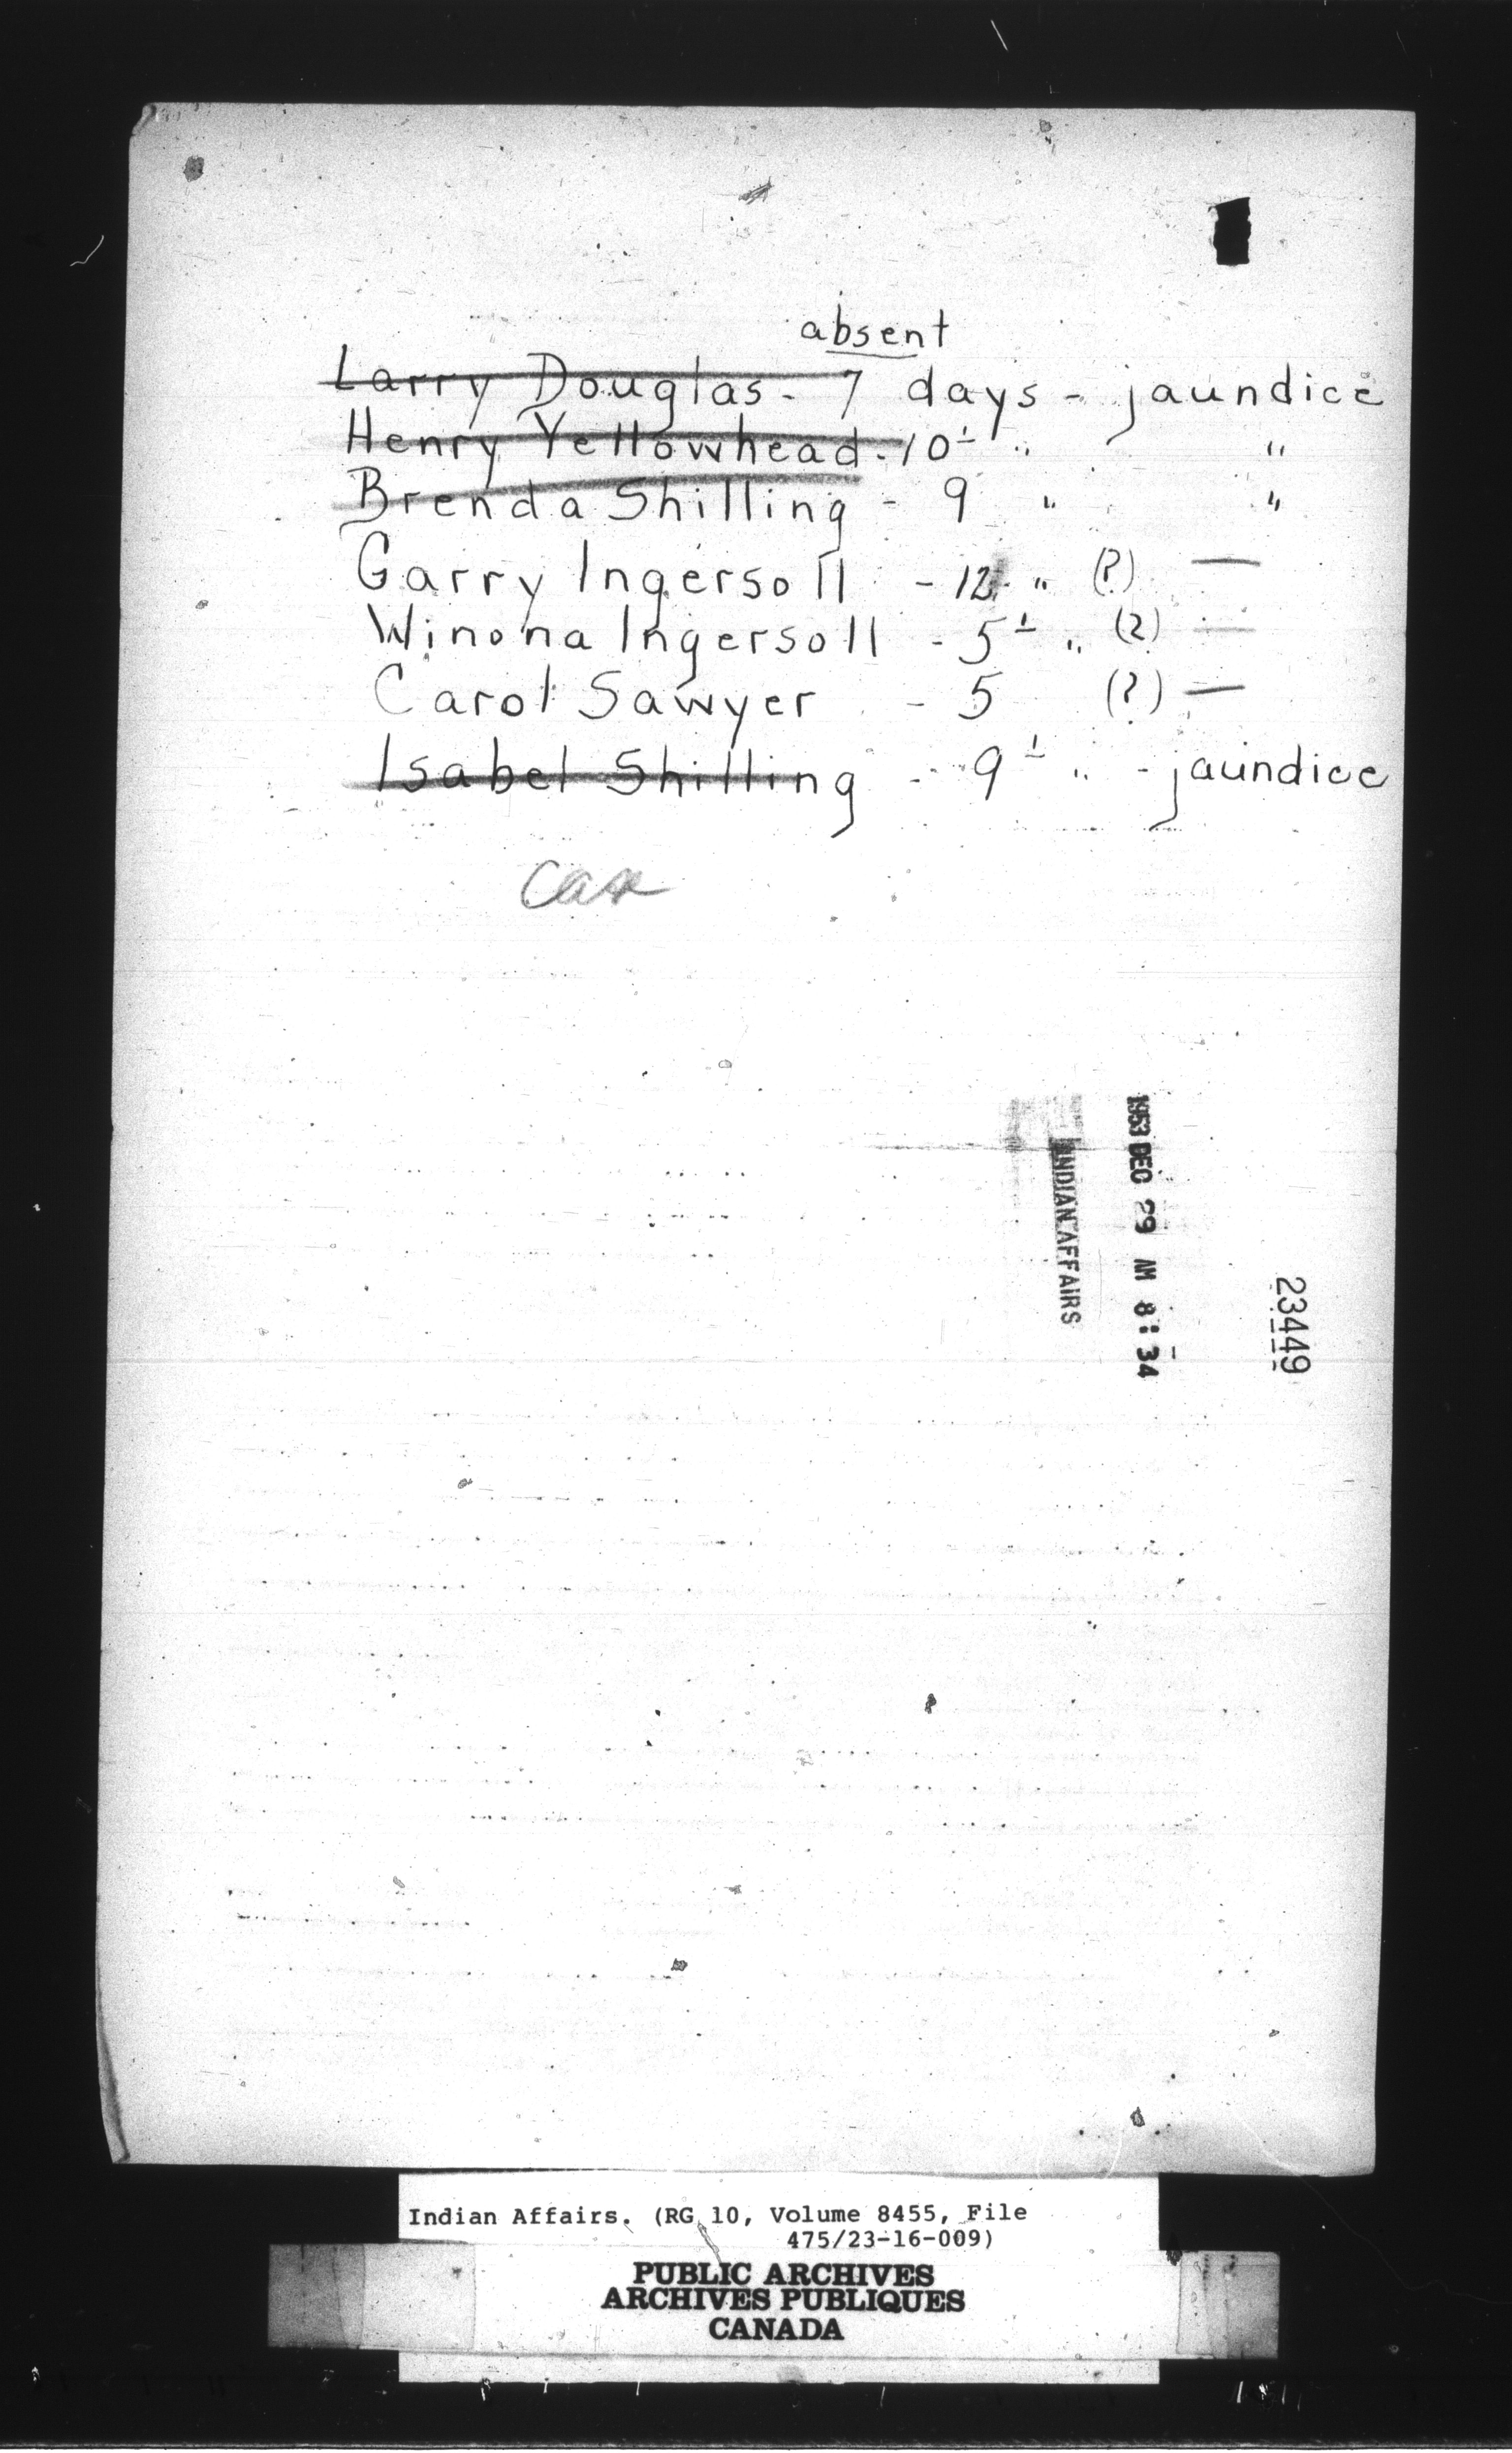 absent
Larry Douglas - 7 days - jaundice
Henry Yellowhead - 10½ " "
Brenda Shilling - 9 " "
Garry Ingersoll - 12 " (?) —
Winona Ingersoll - 5½ " (?) —
Carol Sawyer - 5 (?) —
Isabel Shilling - 9½ " - jaundice
INDIAN AFFAIRS
1953 DEC 29 AM 8:34
23449
Indian Affairs. (RG 10, Volume 8455, File
475/23-16-009)
PUBLIC ARCHIVES
ARCHIVES PUBLIQUES
CANADA